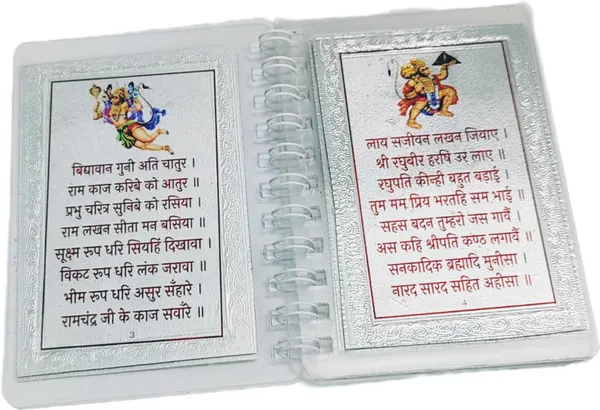 बिद्यावान गुनी अति चातुर ।
राम काज करिबे को आतुर ॥
प्रभु चरित्र सुनिबे को रसिया ।
राम लखन सीता मन बसिया ॥
सूक्ष्म रूप धरि सियहिं दिखावा ।
विकट रूप धरि लंक जरावा ॥
भीम रूप धरि असुर सँहारे ।
रामचंद्र जी के काज सवाँरे ॥
3
लाय सजीवन लखन जियाए ।
श्री रघुबीर हरषि उर लाए ॥
रघुपति कीन्ही बहुत बड़ाई ।
तुम मम प्रिय भरतहि सम भाई ॥
सहस बदन तुम्हरो जस गावैं ।
अस कहि श्रीपति कण्ठ लगावैं ॥
सनकादिक ब्रह्मादि मुनीसा ।
नारद सारद सहित अहीसा ॥
4